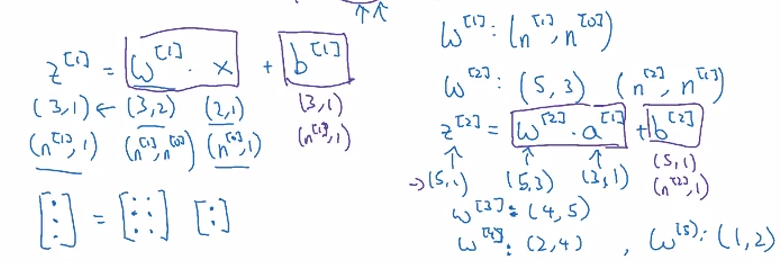 z^[1] = w^[1] · x + b^[1]
(3,1) ← (3,2) (2,1) (3,1)
(n^[1],1) (n^[1],n^[0]) (n^[0],1) (n^[1],1)
[⋮] = [⋮ ⋮] [:]
w^[1]: (n^[1], n^[0])
w^[2]: (5,3) (n^[2], n^[1])
z^[2] = w^[2] · a^[1] + b^[2]
→(5,1) (5,3) (3,1) (5,1)
(n^[2],1)
w^[3]: (4,5)
w^[4]: (2,4) , w^[5]: (1,2)